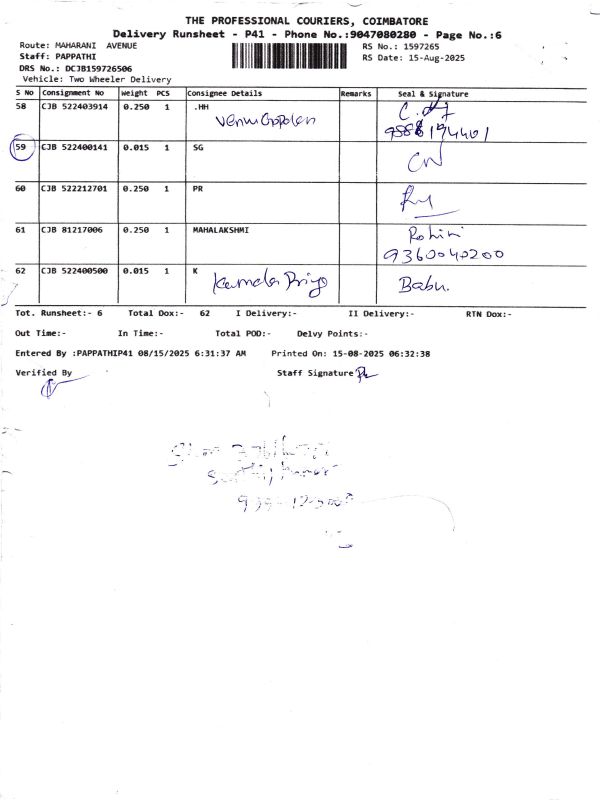 THE PROFESSIONAL COURIERS, COIMBATORE
Delivery Runsheet - P41 - Phone No.:9047080280 - Page No.:6
Route: MAHARANI AVENUE RS No.: 1597265
Staff: PAPPATHI RS Date: 15-Aug-2025
DRS No.: DCJB159726506
Vehicle: Two Wheeler Delivery
S No Consignment No Weight PCS Consignee Details Remarks Seal & Signature
58 CJB 522403914 0.250 1 .HH
Venu Gopalan
59 CJB 522400141 0.015 1 SG
60 CJB 522212701 0.250 1 PR
61 CJB 81217006 0.250 1 MAHALAKSHMI Rohini
9360040200
62 CJB 522400500 0.015 1 K
Kamala Priya Babu.
Tot. Runsheet:- 6 Total Dox:- 62 I Delivery:- II Delivery:- RTN Dox:-
Out Time:- In Time:- Total POD:- Delvy Points:-
Entered By :PAPPATHIP41 08/15/2025 6:31:37 AM Printed On: 15-08-2025 06:32:38
Verified By Staff Signature